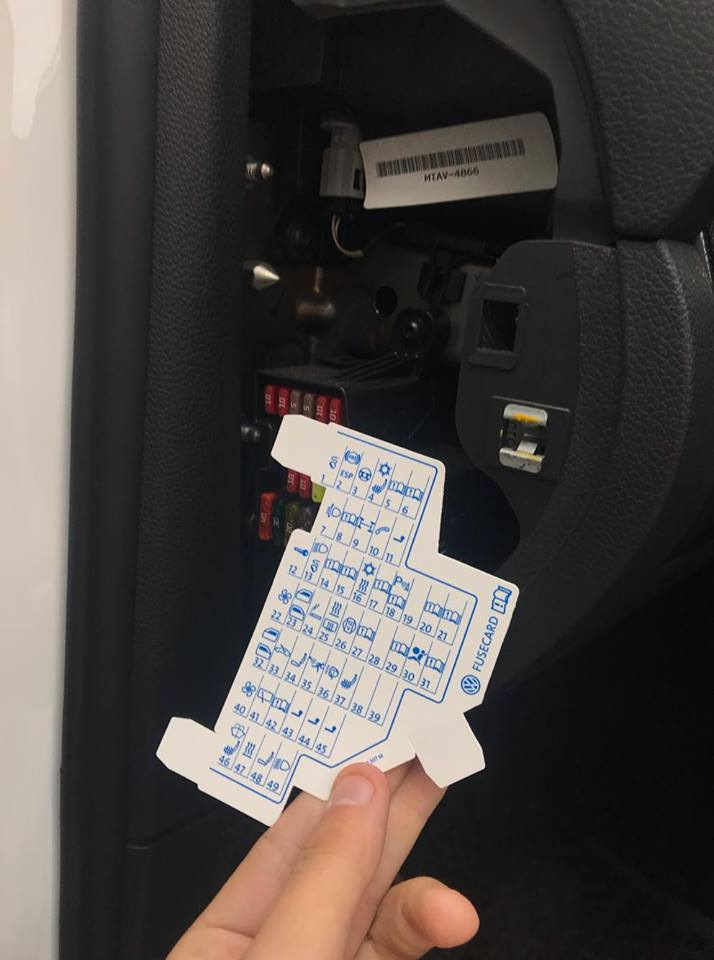 MTAV-4866
10 10 5 5 10 10
10 10
10
1 2 3 4 5 6
ESP
7 8 9 10 11
12 13 14 15 16 17 18 19 20 21
22 23 24 25 26 27 28 29 30 31
32 33 34 35 36 37 38 39
40 41 42 43 44 45
46 47 48 49
FUSECARD